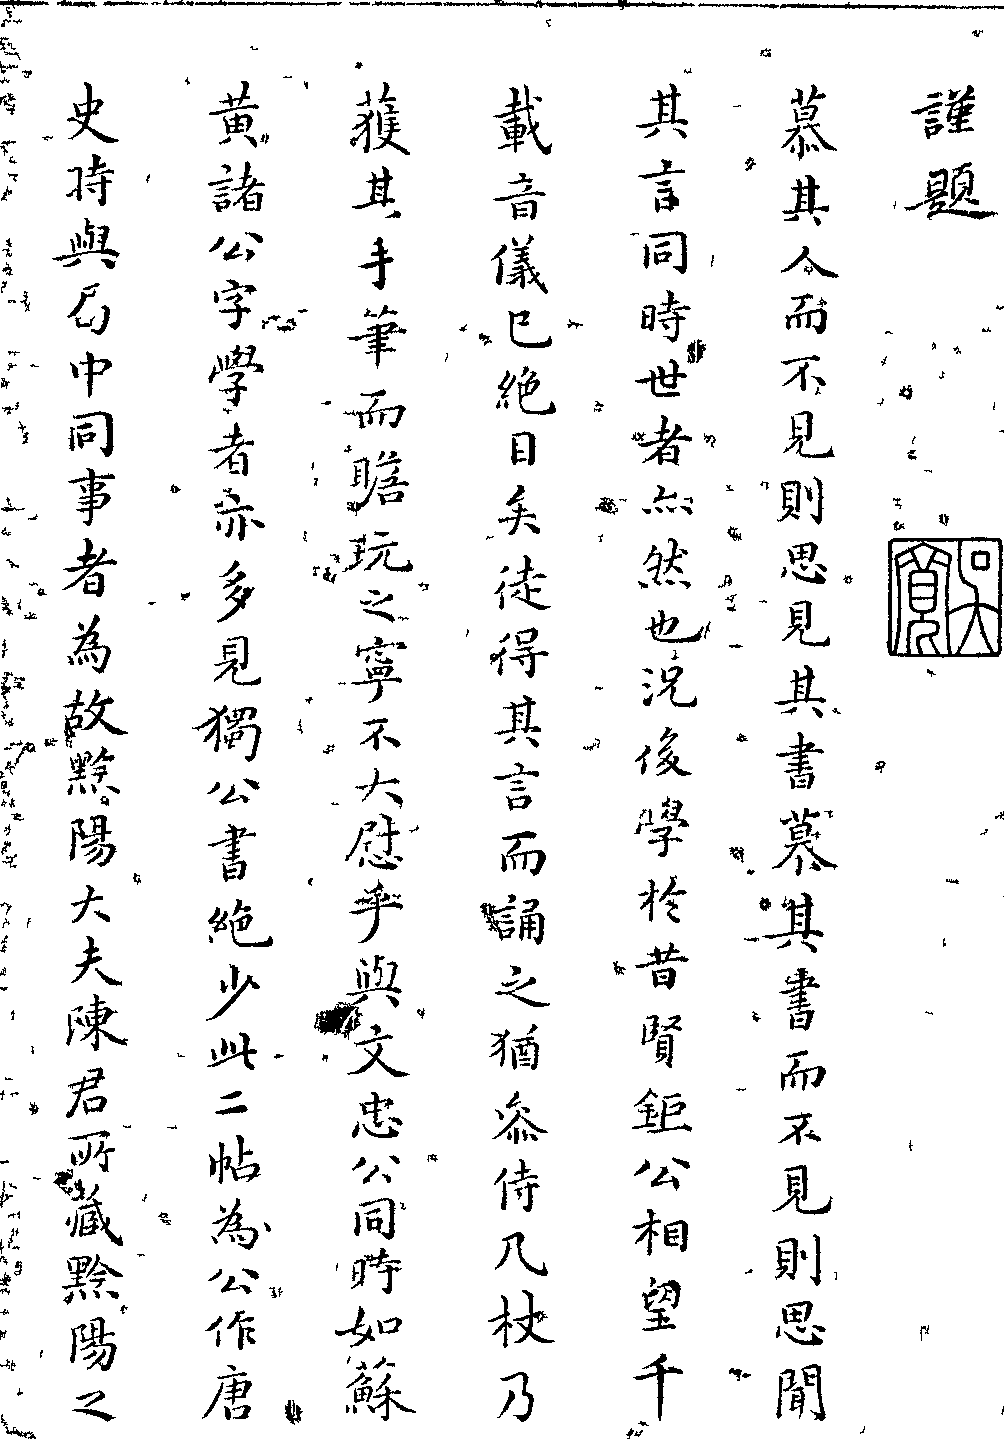 謹題
吳寬
慕其人而不見則思見其書慕其書而不見則思聞
其言同時世者亦然也況後學於昔賢鉅公相望千
載音儀已絕目矣徒得其言而誦之猶忝侍几杖乃
獲其手筆而瞻玩之寧不大慰乎與文忠公同時如蘇
黃諸公字學者亦多見獨公書絕少此二帖為公作唐
史時與局中同事者為故黟陽大夫陳君所藏黟陽之